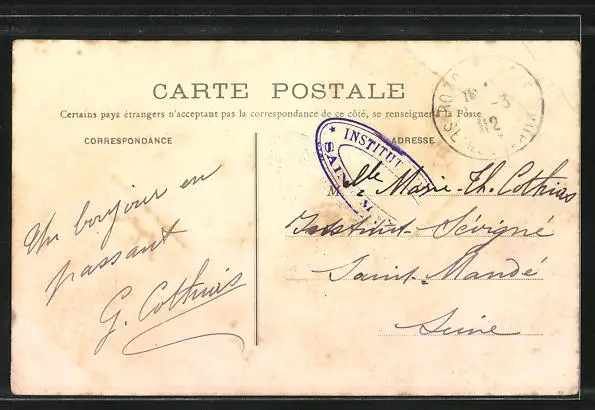 CARTE POSTALE
Certains pays étrangers n'acceptant pas la correspondance de ce côté, se renseigner à la Poste
CORRESPONDANCE
ADRESSE
Un bonjour en
passant
G. Cothias
★ INSTITUT
SAINT-MA
Mlle Marie-Th. Cothias
Institut Sévigné
Saint-Mandé
Seine